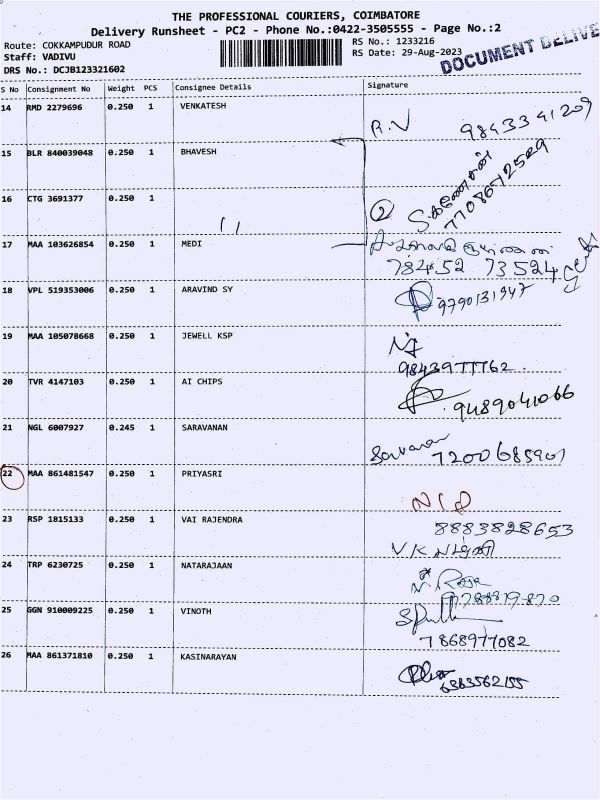 THE PROFESSIONAL COURIERS, COIMBATORE
Delivery Runsheet - PC2 - Phone No.:0422-3505555 - Page No.:2
Route: COKKAMPUDUR ROAD RS No.: 1233216
Staff: VADIVU RS Date: 29-Aug-2023
DRS No.: DCJB123321602 DOCUMENT DELIVE
S No Consignment No Weight PCS Consignee Details Signature
14 RMD 2279696 0.250 1 VENKATESH
R.V 9843341209
15 BLR 840039048 0.250 1 BHAVESH
16 CTG 3691377 0.250 1
2
7708672529
17 MAA 103626854 0.250 1 MEDI
78452 73524
18 VPL 519353006 0.250 1 ARAVIND SY
9790131947
19 MAA 105078668 0.250 1 JEWELL KSP
9843977762
20 TVR 4147103 0.250 1 AI CHIPS
9489041066
21 NGL 6007927 0.245 1 SARAVANAN
Saravanan 7200685901
22 MAA 861481547 0.250 1 PRIYASRI
23 RSP 1815133 0.250 1 VAI RAJENDRA
8883828653
24 TRP 6230725 0.250 1 NATARAJAAN
N. Raja
25 GGN 910009225 0.250 1 VINOTH
7868977082
26 MAA 861371810 0.250 1 KASINARAYAN
6383562155